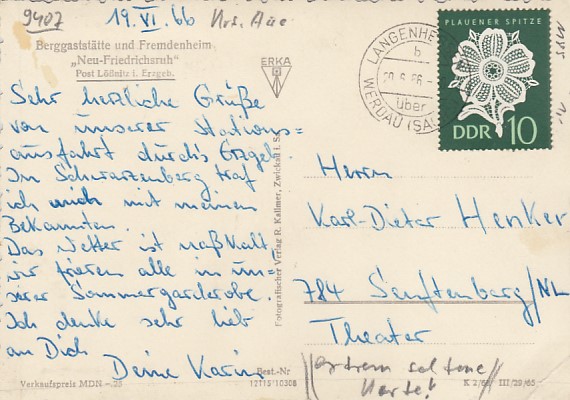 9407
19. VI. 66
Krs. Aue
Berggaststätte und Fremdenheim
„Neu-Friedrichsruh"
Post Lößnitz i. Erzgeb.
ERKA
Sehr herzliche Grüße
von unserer Stations=
ausfahrt durch's Erzgeb.
In Schwarzenberg traf
ich mich mit meinen
Bekannten.
Das Wetter ist naßkalt,
wir frieren alle in un=
serer Sommergarderobe.
Ich denke sehr lieb
an Dich
Deine Karin
Verkaufspreis MDN -,25
Best.-Nr
12T15 10308
Fotografischer Verlag R. Kallmer, Zwickau i. Sa.
LANGENHE
b
über
WERDAU (SA
PLAUENER SPITZE
DDR 10
Herrn
Karl-Dieter Henker
784 Senftenberg/NL
Theater
((extrem seltene
Karte!))
K 2/65 III/29/65